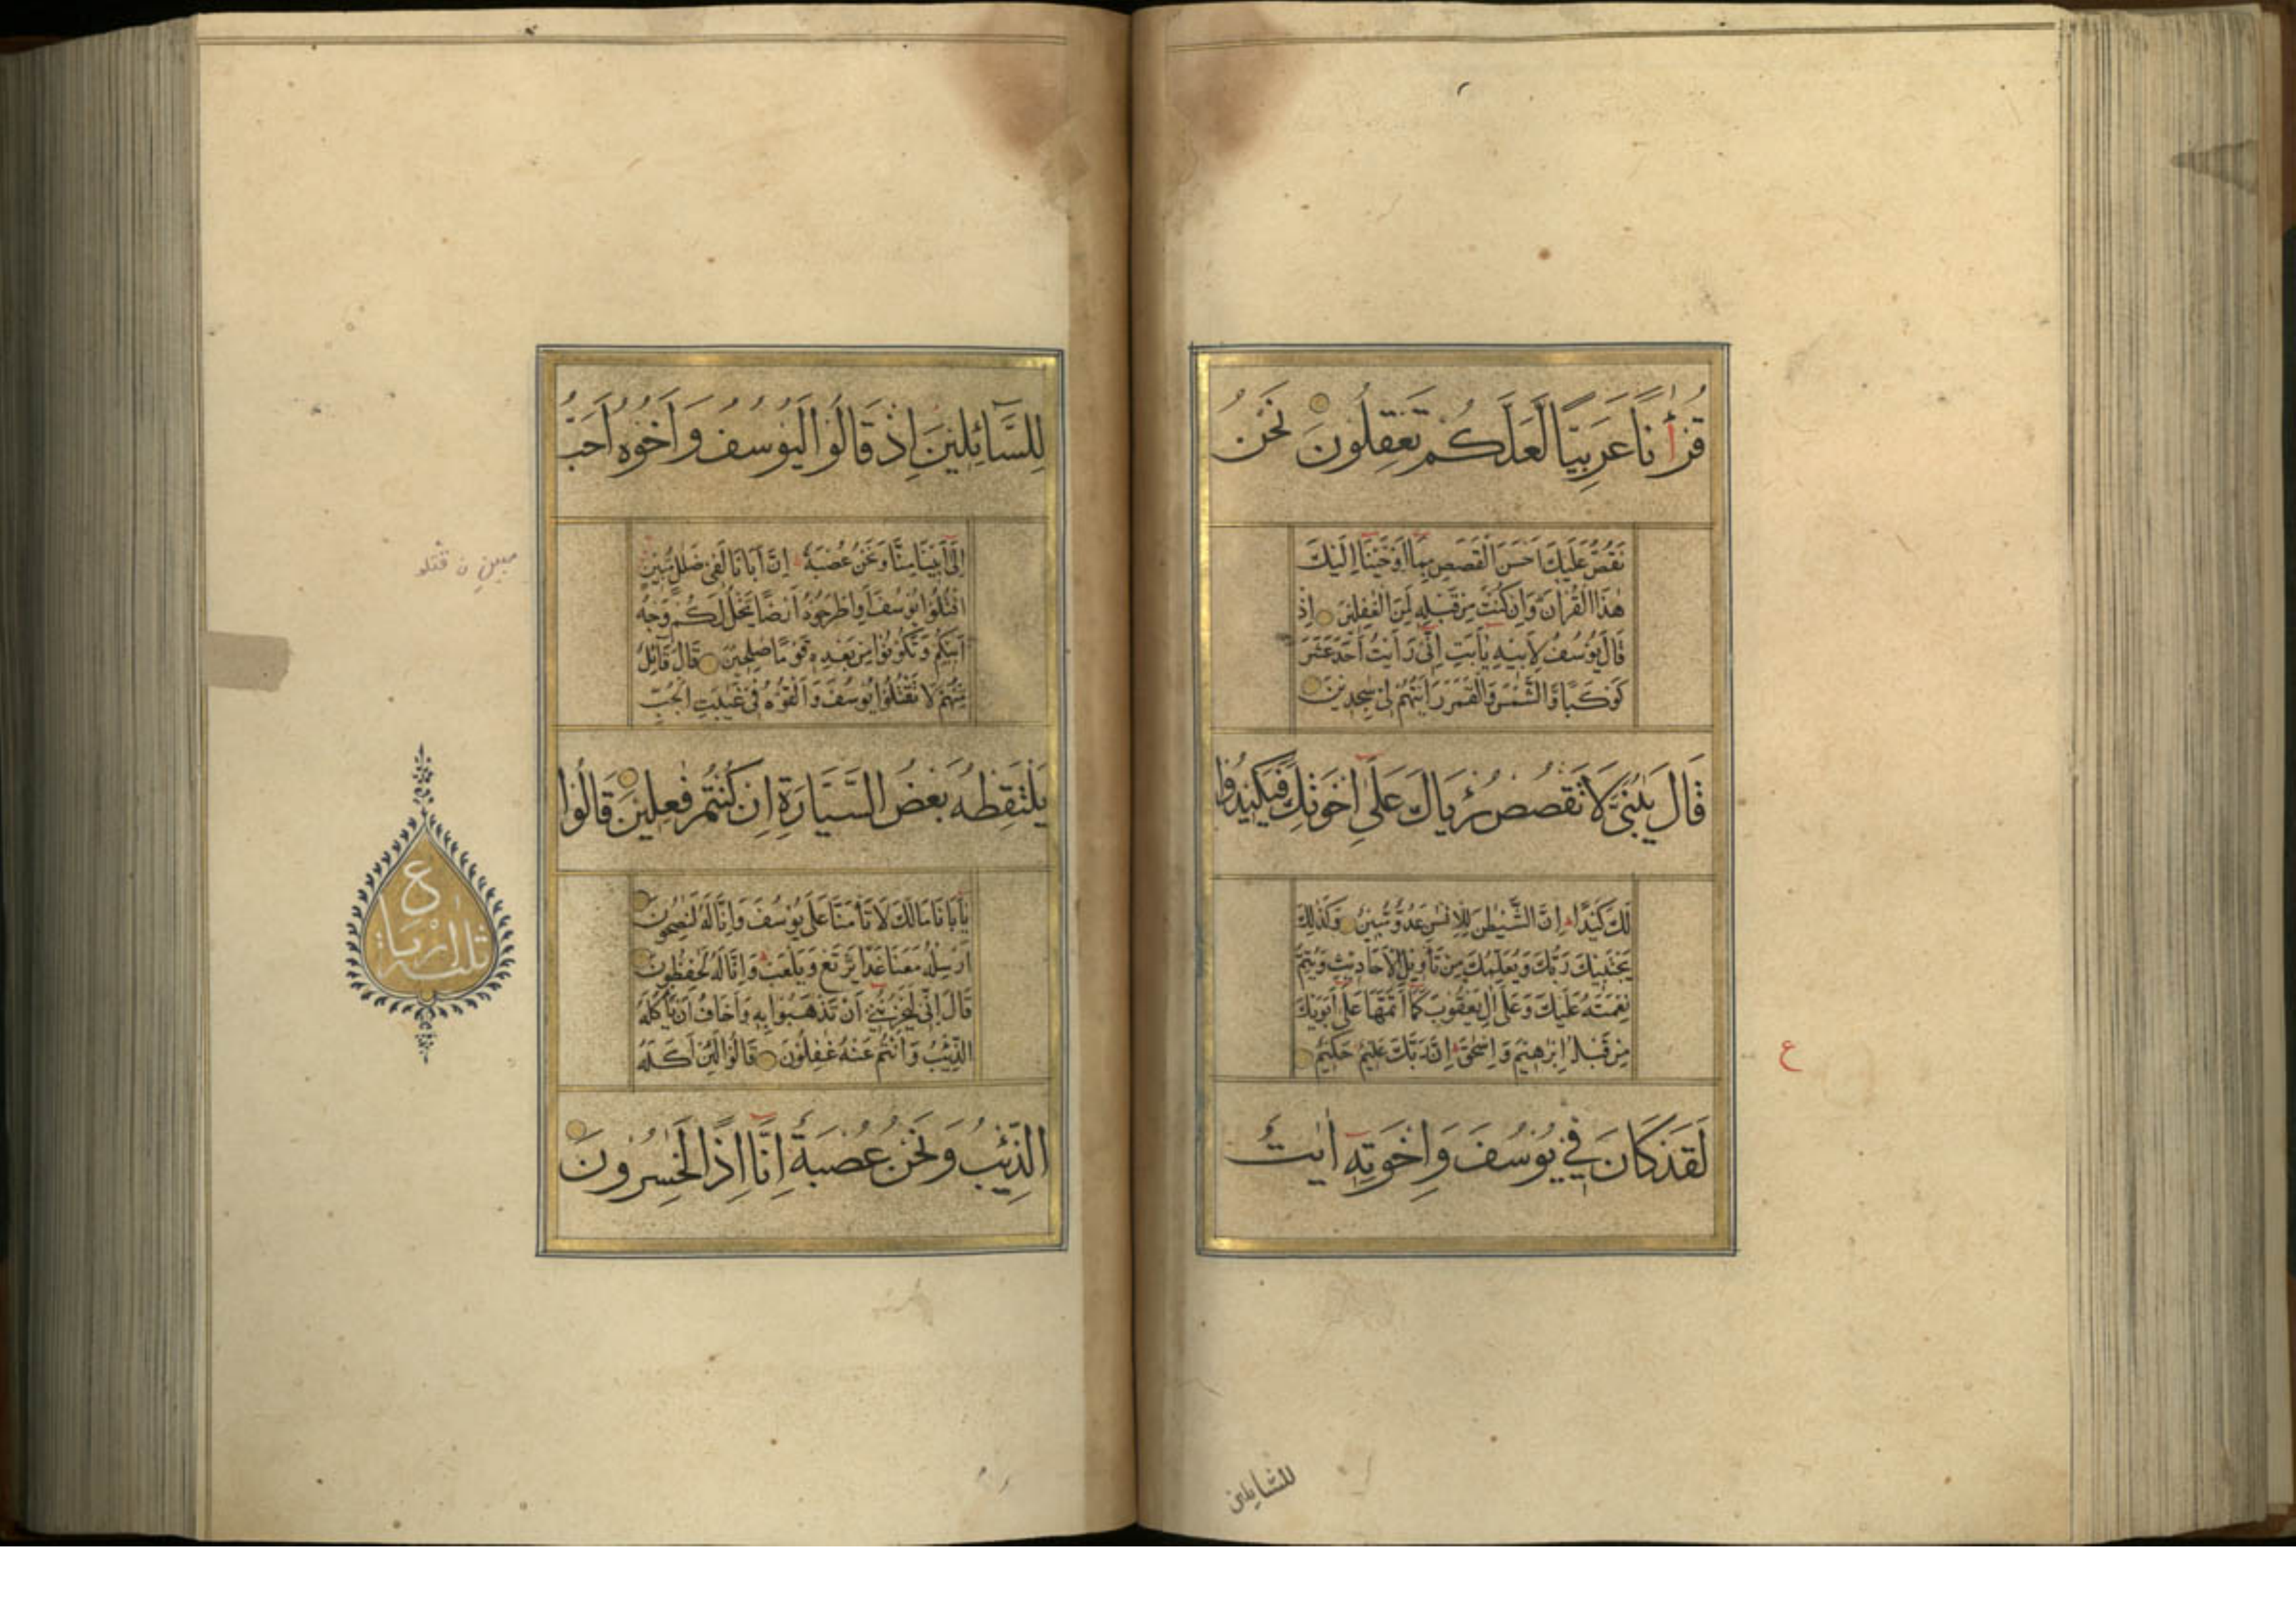 قُرْأٰنًا عَرَبِيًّا لَعَلَّكُمْ تَعْقِلُونَ نَحْنُ
نَقُصُّ عَلَيْكَ اَحْسَنَ الْقَصَصِ بِمَا اَوْحَيْنَا اِلَيْكَ
هٰذَا الْقُرْاٰنَ وَاِنْ كُنْتَ مِنْ قَبْلِهٖ لَمِنَ الْغٰفِلِيْنَ اِذْ
قَالَ يُوْسُفُ لِاَبِيْهِ يٰاَبَتِ اِنِّى رَاَيْتُ اَحَدَ عَشَرَ
كَوْكَبًا وَّالشَّمْسَ وَالْقَمَرَ رَاَيْتُهُمْ لِىْ سٰجِدِيْنَ
قَالَ يٰبُنَىَّ لَا تَقْصُصْ رُءْيَاكَ عَلٰى اِخْوَتِكَ فَيَكِيْدُوْا
لَكَ كَيْدًا اِنَّ الشَّيْطٰنَ لِلْاِنْسٰنِ عَدُوٌّ مُّبِيْنٌ وَكَذٰلِكَ
يَجْتَبِيْكَ رَبُّكَ وَيُعَلِّمُكَ مِنْ تَأْوِيْلِ الْاَحَادِيْثِ وَيُتِمُّ
نِعْمَتَهٗ عَلَيْكَ وَعَلٰى اٰلِ يَعْقُوْبَ كَمَا اَتَمَّهَا عَلٰى اَبَوَيْكَ
مِنْ قَبْلُ اِبْرٰهِيْمَ وَاِسْحٰقَ اِنَّ رَبَّكَ عَلِيْمٌ حَكِيْمٌ
ع
لَقَدْ كَانَ فِيْ يُوْسُفَ وَاِخْوَتِهٖ اٰيٰتٌ
للسّايلين
لِلسَّآئِلِيْنَ اِذْ قَالُوْا لَيُوْسُفُ وَاَخُوْهُ اَحَبُّ
اِلٰى اَبِيْنَا مِنَّا وَنَحْنُ عُصْبَةٌ اِنَّ اَبَانَا لَفِىْ ضَلٰلٍ مُّبِيْنٍ
مبينِ ن قتلو
اقْتُلُوْا يُوْسُفَ اَوِ اطْرَحُوْهُ اَرْضًا يَّخْلُ لَكُمْ وَجْهُ
اَبِيْكُمْ وَتَكُوْنُوْا مِنْ بَعْدِهٖ قَوْمًا صٰلِحِيْنَ قَالَ قَآئِلٌ
مِّنْهُمْ لَا تَقْتُلُوْا يُوْسُفَ وَاَلْقُوْهُ فِىْ غَيٰبَتِ الْجُبِّ
يَلْتَقِطْهُ بَعْضُ السَّيَّارَةِ اِنْ كُنْتُمْ فٰعِلِيْنَ قَالُوْا
يٰاَبَانَا مَا لَكَ لَا تَأْمَنَّا عَلٰى يُوْسُفَ وَاِنَّا لَهٗ لَنٰصِحُوْنَ
اَرْسِلْهُ مَعَنَا غَدًا يَّرْتَعْ وَيَلْعَبْ وَاِنَّا لَهٗ لَحٰفِظُوْنَ
قَالَ اِنِّى لَيَحْزُنُنِىْ اَنْ تَذْهَبُوْا بِهٖ وَاَخَافُ اَنْ يَّأْكُلَهُ
الذِّئْبُ وَاَنْتُمْ عَنْهُ غٰفِلُوْنَ قَالُوْا لَئِنْ اَكَلَهُ
الذِّئْبُ وَنَحْنُ عُصْبَةٌ اِنَّا اِذًا لَّخٰسِرُوْنَ
ع
ثلثة ارباع